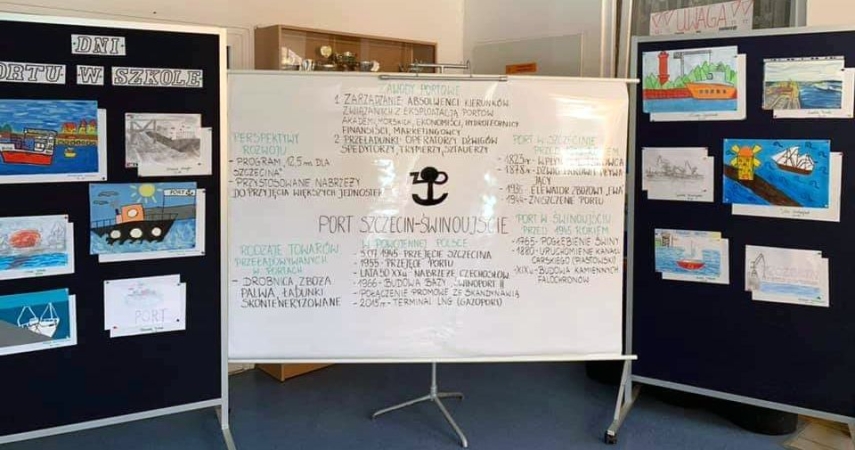 DNI
PORTU W SZKOLE
UWAGA
ZAWODY PORTOWE
1. ZARZĄDZANIE: ABSOLWENCI KIERUNKÓW
ZWIĄZANYCH Z EKSPLOATACJĄ PORTÓW
AKADEMII MORSKICH, EKONOMIŚCI, HYDROTECHNICY
FINANSIŚCI, MARKETINGOWCY
2. PRZEŁADUNKI: OPERATORZY DŹWIGÓW
SPEDYTORZY, TRYMERZY, SZTAUERZY
PERSPEKTYWY
ROZWOJU
- PROGRAM „12,5 m DLA
SZCZECINA"
- PRZYSTOSOWANIE NABRZEŻY
DO PRZYJĘCIA WIĘKSZYCH JEDNOSTEK
PORT SZCZECIN-ŚWINOUJŚCIE
RODZAJE TOWARÓW
PRZEŁADOWYWANYCH
W PORTACH
- DROBNICA, ZBOŻA
PALIWA, ŁADUNKI
SKONTENERYZOWANE
W POWOJENNEJ POLSCE
- 5.07.1945 - PRZEJĘCIE SZCZECINA
- 1955 - PRZEJĘCIE PORTU
- LATA 50 XXw. NABRZEŻE CZECHOSŁOW.
- 1966 - BUDOWA BAZY „ŚWINOPORT II
- POŁĄCZENIE PROMOWE ZE SKANDYNAWIĄ
- 2015r - TERMINAL LNG (GAZOPORT)
PORT W SZCZECINIE
PRZED
- 1823r -
- 1878r -
- 1935 - ELEWATOR ZBOŻOWY „EWA"
- 1944 - ZNISZCZENIE PORTU
PORT W ŚWINOUJŚCIU
PRZED 1945 ROKIEM
- 1765 - POGŁĘBIENIE ŚWINY
- 1880 - URUCHOMIENIE KANAŁU
CARSKIEGO (PIASTOWSKI)
- XIXw - BUDOWA KAMIENNYCH
FALOCHRONÓW
PORT